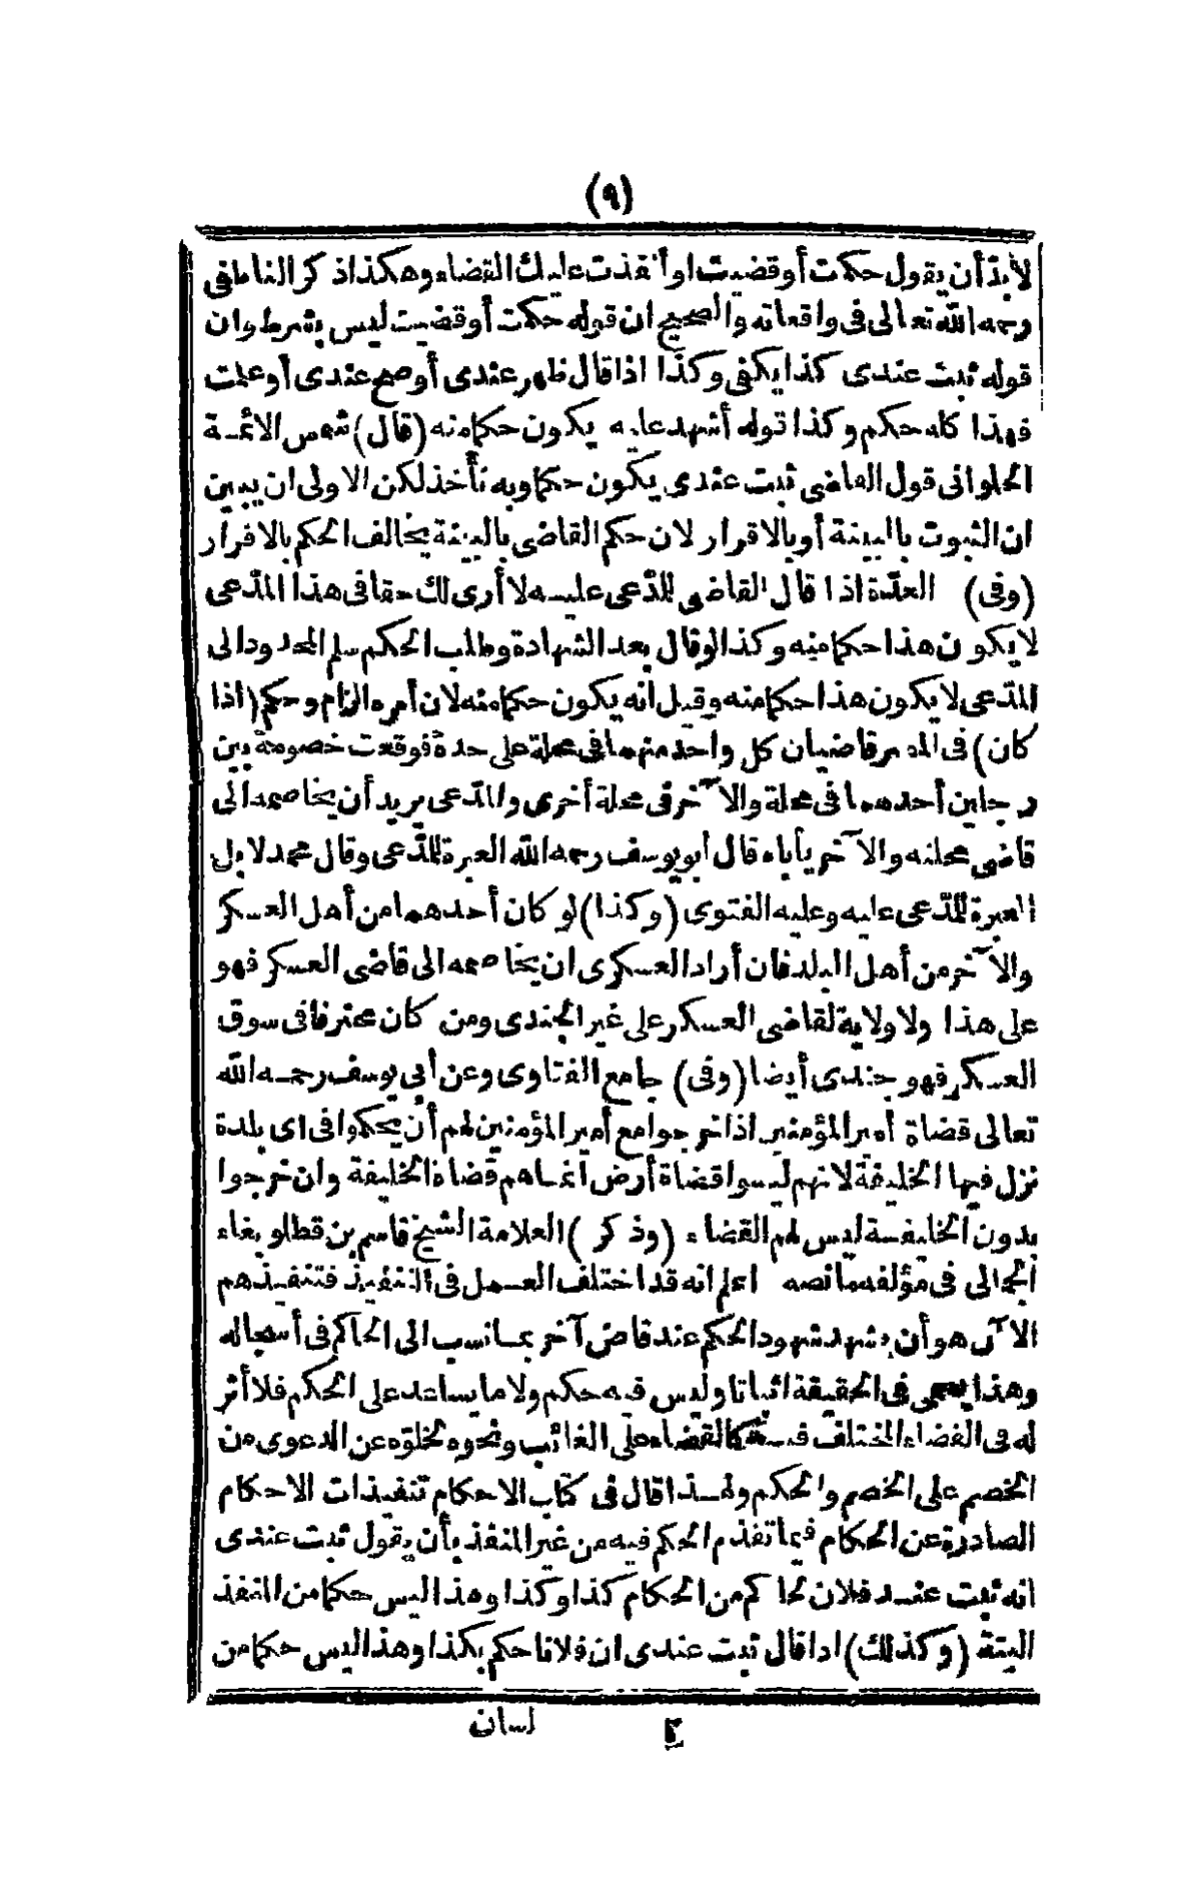 (٩)
لابدّ أن يقول حكمت أو قضيت او أنفذت عليك القضاء وهكذا ذكر الناطفى
رحمه الله تعالى فى واقعاته والصحيح ان قوله حكمت أو قضيت ليس بشرط وان
قوله ثبت عندى كذا يكفى وكذا اذا قال ظهر عندى أو صح عندى أو علمت
فهذا كله حكم وكذا قوله أشهد عليه يكون حكما منه (قال) شمس الائمة
الحلوانى قول القاضى ثبت عندى يكون حكما وبه نأخذ لكن الاولى ان يبين
ان الثبوت بالبينة أو بالاقرار لان حكم القاضى بالبينة يخالف الحكم بالاقرار
(وفى) العدّة اذا قال القاضى للمدّعى عليه لا أرى لك حقا فى هذا المدّعى
لا يكون هذا حكما منه وكذا لو قال بعد الشهادة وطلب الحكم سلم المحدود الى
المدّعى لا يكون هذا حكما منه وقيل انه يكون حكما منه لان أمره الزام وحكم (اذا
كان) فى المصر قاضيان كل واحد منهما فى محلة على حدة فوقعت خصومة بين
رجلين أحدهما فى محلة والآخر فى محلة أخرى والمدّعى يريد أن يخاصمه الى
قاضى محلته والآخر يأباه قال أبو يوسف رحمه الله العبرة للمدّعى وقال محمد لا بل
العبرة للمدّعى عليه وعليه الفتوى (وكذا) لو كان أحدهما من أهل العسكر
والآخر من أهل البلد فان أراد العسكرى ان يخاصمه الى قاضى العسكر فهو
على هذا ولا ولاية لقاضى العسكر على غير الجندى ومن كان محترفا فى سوق
العسكر فهو جندى أيضا (وفى) جامع الفتاوى وعن أبى يوسف رحمه الله
تعالى قضاة أمير المؤمنين اذا خرجوا مع أمير المؤمنين لهم أن يحكموا فى اى بلدة
نزل فيها الخليفة لانهم ليسوا قضاة أرض انما هم قضاة الخليفة وان خرجوا
بدون الخليفة ليس لهم القضاء (وذكر) العلامة الشيخ قاسم بن قطلو بغاء
الجمالى فى مؤلفه ما نصه اعلم انه قد اختلف العمل فى التنفيذ فتنفيذهم
الآن هو أن يشهد شهود الحكم عند قاض آخر بما نسب الى الحاكم فى أسجاله
وهذا يسمى فى الحقيقة اثباتا وليس فيه حكم ولا ما يساعد على الحكم فلا أثر
له فى القضاء المختلف فيه كالقضاء على الغائب ونحوه لخلوّه عن الدعوى من
الخصم على الخصم والحكم ولهذا قال فى كتاب الاحكام تنفيذات الاحكام
الصادرة عن الحكام فيما تقدم الحكم فيه من غير المنفذ بأن يقول ثبت عندى
انه ثبت عند فلان الحاكم من الحكام كذا وكذا وهذا ليس حكما من المنفذ
البتة (وكذلك) اذا قال ثبت عندى ان فلانا حكم بكذا وهذا ليس حكما من
٢ لسان